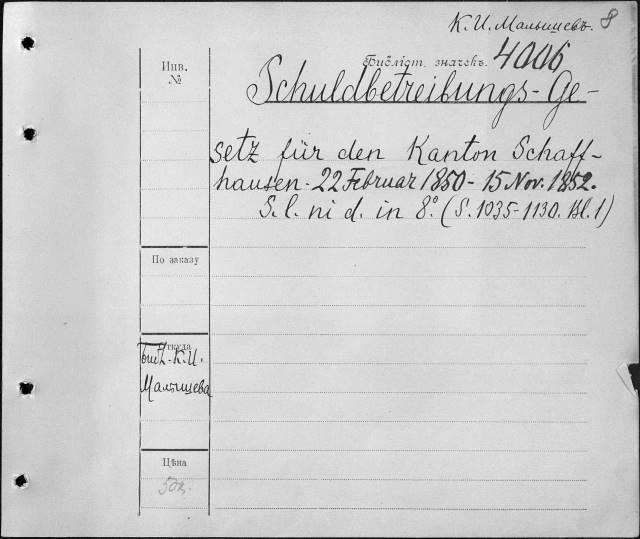 К. И. Малышевъ. 8
Инв.
№
Библіот. значекъ. 4006
Schuldbetreibungs-Ge-
setz für den Kanton Schaff-
hausen. 22 Februar 1850 - 15 Nov. 1852.
S. l. ni d. in 8º. (S. 1035-1130. Bl. 1)
По заказу
Откуда
Библ. К. И.
Малышева
Цѣна
50к.